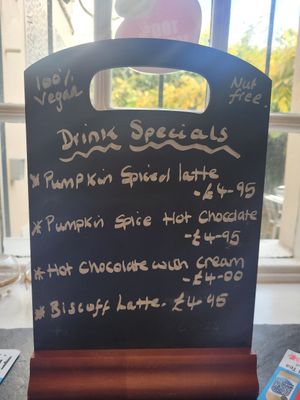 100%
Vegan
Nut
free
Drink Specials
* Pumpkin Spiced latte
- £4-95
* Pumpkin Spice Hot Chocolate
- £4-95
* Hot Chocolate with cream
- £4-00
* Biscoff Latte - £4-45